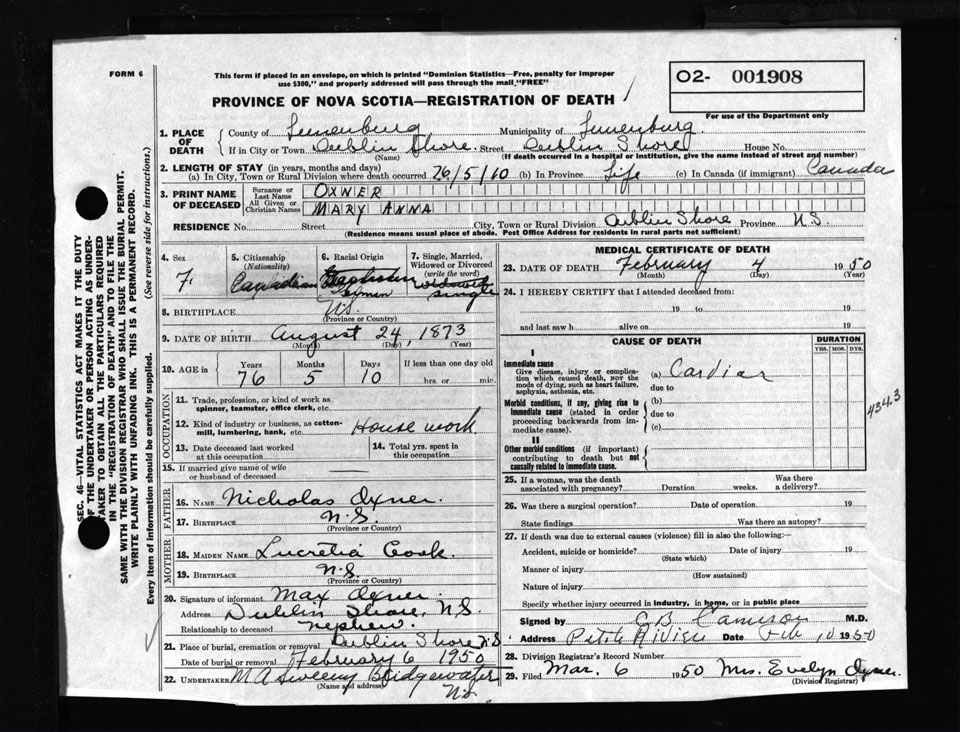 FORM 6
This form if placed in an envelope, on which is printed "Dominion Statistics—Free, penalty for improper
use $300," and properly addressed will pass through the mail "FREE"
PROVINCE OF NOVA SCOTIA—REGISTRATION OF DEATH
O2- 001908
For use of the Department only
1. PLACE OF DEATH { County of Lunenburg Municipality of Lunenburg
If in City or Town Dublin Shore Street Dublin Shore House No.
(Name) (If death occurred in a hospital or institution, give the name instead of street and number)
2. LENGTH OF STAY (in years, months and days)
(a) In City, Town or Rural Division where death occurred 76/5/10 (b) In Province Life (c) In Canada (if immigrant) Canada
3. PRINT NAME OF DECEASED { Surname or Last Name OXNER
All Given or Christian Names MARY ANNA
RESIDENCE No. Street City, Town or Rural Division Dublin Shore Province N.S.
(Residence means usual place of abode. Post Office Address for residents in rural parts not sufficient)
4. Sex F.
5. Citizenship (Nationality) Canadian
6. Racial Origin German
7. Single, Married, Widowed or Divorced (write the word) widowed single
8. BIRTHPLACE N.S.
(Province or Country)
9. DATE OF BIRTH August 24, 1873
(Month) (Day) (Year)
10. AGE in Years 76 Months 5 Days 10 If less than one day old hrs. or min.
OCCUPATION
11. Trade, profession, or kind of work as
spinner, teamster, office clerk, etc.
12. Kind of industry or business, as cotton-
mill, lumbering, bank, etc. House work
13. Date deceased last worked
at this occupation
14. Total yrs. spent in
this occupation
15. If married give name of wife
or husband of deceased
FATHER
16. NAME Nicholas Oxner.
17. BIRTHPLACE N.S.
(Province or Country)
MOTHER
18. MAIDEN NAME Lucretia Cook.
19. BIRTHPLACE N.S.
(Province or Country)
20. Signature of informant Max Oxner.
Address Dublin Shore, N.S.
Relationship to deceased nephew.
21. Place of burial, cremation or removal Dublin Shore N.S
Date of burial or removal February 6 1950
22. UNDERTAKER M A Sweeny Bridgewater
(Name and address) N.S.
MEDICAL CERTIFICATE OF DEATH
23. DATE OF DEATH February 4 1950
(Month) (Day) (Year)
24. I HEREBY CERTIFY that I attended deceased from:
19 to 19
and last saw h alive on 19
CAUSE OF DEATH
DURATION
YRS. MOS. DYS.
I
Immediate cause
Give disease, injury or complica-
tion which caused death, NOT the
mode of dying, such as heart failure,
asphyxia, asthenia, etc.
(a) Cardiac
due to
Morbid conditions, if any, giving rise to
immediate cause (stated in order
proceeding backwards from im-
mediate cause).
(b)
due to
(c)
434.3
II
Other morbid conditions (if important)
contributing to death but not
causally related to immediate cause.
25. If a woman, was the death
associated with pregnancy? Duration weeks. Was there
a delivery?
26. Was there a surgical operation? Date of operation 19
State findings Was there an autopsy?
27. If death was due to external causes (violence) fill in also the following:
Accident, suicide or homicide? Date of injury 19
(State which)
Manner of injury
(How sustained)
Nature of injury
Specify whether injury occurred in industry, in home, or in public place
Signed by C B Cameron M.D.
Address Petite Riviere Date Feb 10 1950
28. Division Registrar's Record Number
29. Filed Mar. 6 1950 Mrs. Evelyn Oxner.
(Division Registrar)
SEC. 46—VITAL STATISTICS ACT MAKES IT THE DUTY
OF THE UNDERTAKER OR PERSON ACTING AS UNDER-
TAKER TO OBTAIN ALL THE PARTICULARS REQUIRED
IN THE "REGISTRATION OF DEATH" AND TO FILE THE
SAME WITH THE DIVISION REGISTRAR WHO SHALL ISSUE THE BURIAL PERMIT.
WRITE PLAINLY WITH UNFADING INK. THIS IS A PERMANENT RECORD.
Every item of information should be carefully supplied. (See reverse side for instructions.)